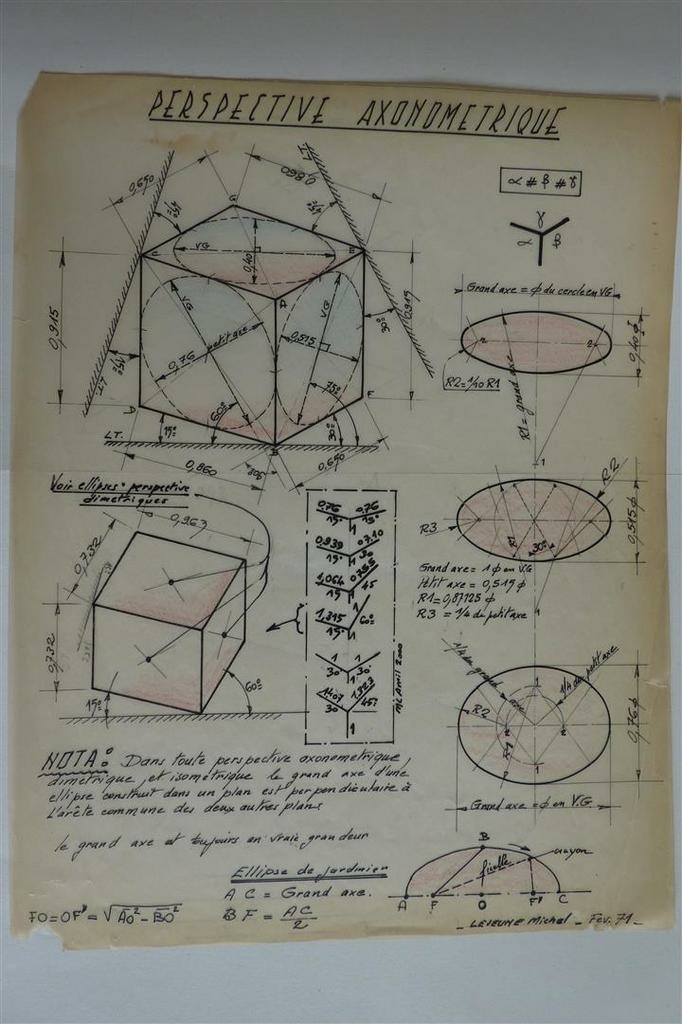 PERSPECTIVE AXONOMETRIQUE
0,650
0,860
LT
45°
α # β # γ
γ
α β
G
C
E
VG
0,40
A
0,915
0,915
VG
VG
0,76 petit axe
0,515
75°
60°
15°
30°
A
F
B
LT.
0,860
0,650
Grand axe = ϕ du cercle en VG
0,40 ϕ
R2 = 1/10 R1
R1 = grand axe
2
1
Voir ellipses perspective
dimetriques
0,963
0,732
0,732
15°
60°
0,76 0,76
15° 15°
0,939 0,710
15° 30
1,064 0,755
15 45
1,315
15° 60°
1 1
30 1 30
1407 1,323
30 45°
1
ML Avril 2000
R2
R3
R1
30°
0,515 ϕ
Grand axe = 1 ϕ en V.G
Petit axe = 0,515 ϕ
R1 = 0,87125 ϕ
R3 = 1/4 du petit axe
1
1/4 du grand axe
1/4 du petit axe
R2
1
1
0,76 ϕ
Grand axe = ϕ en V.G
NOTA: Dans toute perspective axonometrique,
dimetrique, et isométrique le grand axe d'une
ellipse construit dans un plan est perpendiculaire à
L'arête commune des deux autres plans
le grand axe est toujours en vraie grandeur
Ellipse de jardinier
A C = Grand axe.
B F = AC/2
FO = OF' = √AO² - BO²
B
ficelle
crayon
A F O F' C
LEJEUNE Michel - Fev. 71